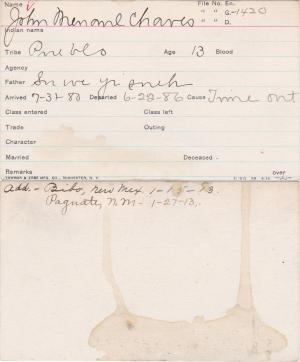 Name File No. En.
John Menaul Chaves " " G-1420
" " D.
Indian name
Tribe Pueblo Age 13 Blood
Agency
Father
Arrived 7-31-80 Departed 6-22-86 Cause Time out
Class entered Class left
Trade Outing
Character
Married Deceased -
Remarks over
Add. - Bibo, New Mex. 1-15-13.
Paguate, N.M. - 1-27-13.